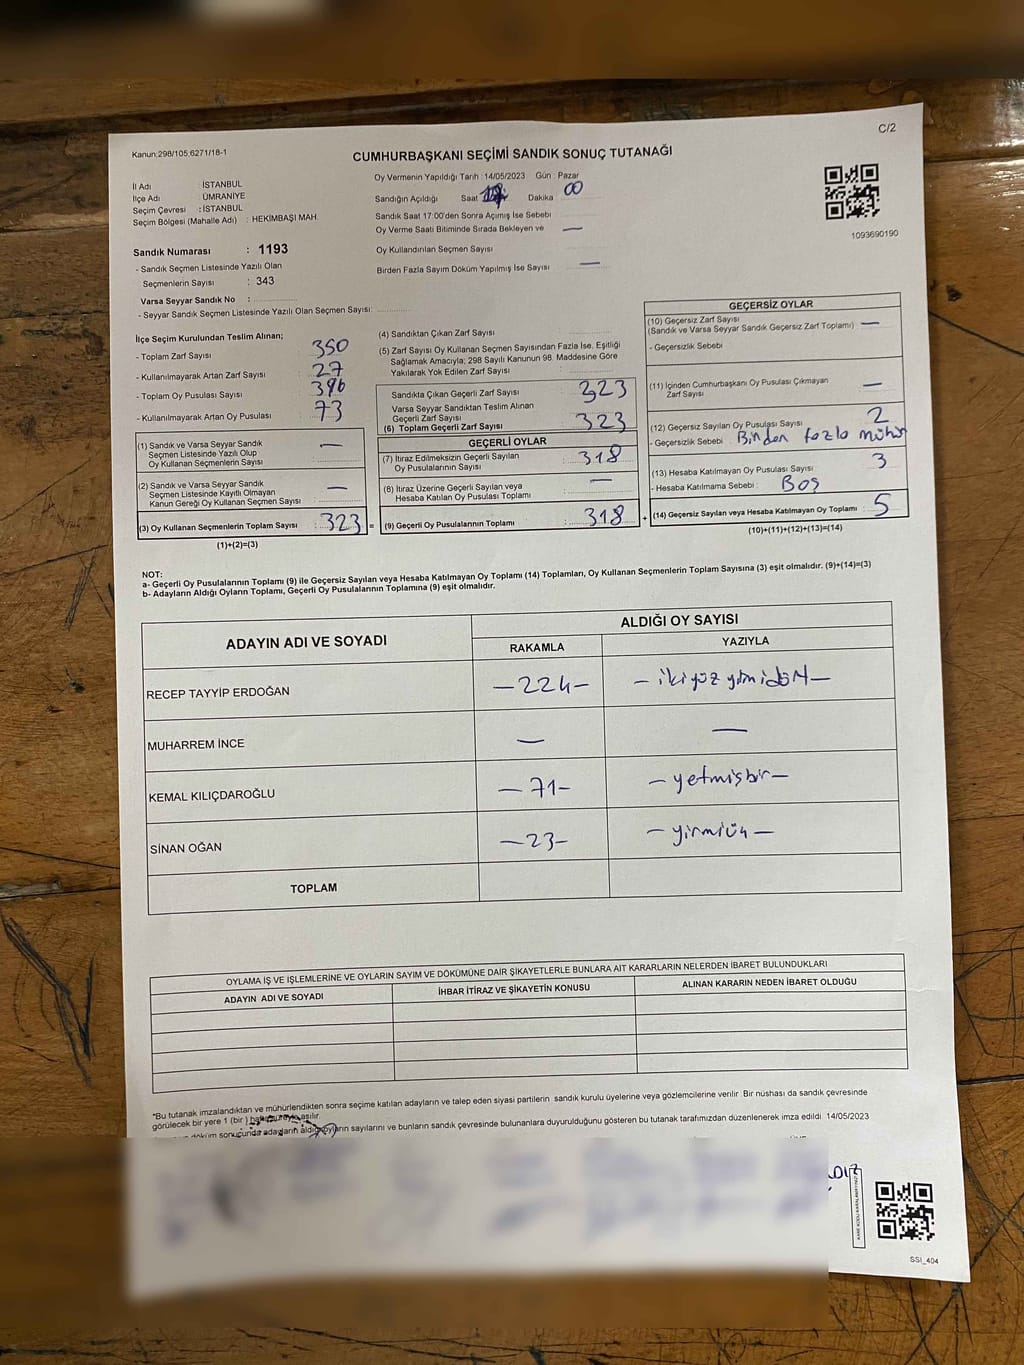 C/2
Kanun:298/105,6271/18-1
CUMHURBAŞKANI SEÇİMİ SANDIK SONUÇ TUTANAĞI
İl Adı : İSTANBUL
İlçe Adı : ÜMRANİYE
Seçim Çevresi : İSTANBUL
Seçim Bölgesi (Mahalle Adı) : HEKİMBAŞI MAH.
Sandık Numarası : 1193
- Sandık Seçmen Listesinde Yazılı Olan
Seçmenlerin Sayısı : 343
Varsa Seyyar Sandık No :
- Seyyar Sandık Seçmen Listesinde Yazılı Olan Seçmen Sayısı:
Oy Vermenin Yapıldığı Tarih :14/05/2023 Gün : Pazar
Sandığın Açıldığı Saat Dakika 00
Sandık Saat 17:00'den Sonra Açımış İse Sebebi
Oy Verme Saati Bitiminde Sırada Bekleyen ve —
Oy Kullandırılan Seçmen Sayısı
Birden Fazla Sayım Döküm Yapılmış İse Sayısı —
1093690190
İlçe Seçim Kurulundan Teslim Alınan;
- Toplam Zarf Sayısı 350
- Kullanılmayarak Artan Zarf Sayısı 27
- Toplam Oy Pusulası Sayısı 396
- Kullanılmayarak Artan Oy Pusulası 73
(1) Sandık ve Varsa Seyyar Sandık
Seçmen Listesinde Yazılı Olup
Oy Kullanan Seçmenlerin Sayısı —
(2) Sandık ve Varsa Seyyar Sandık
Seçmen Listesinde Kayıtlı Olmayan
Kanun Gereği Oy Kullanan Seçmen Sayısı —
(3) Oy Kullanan Seçmenlerin Toplam Sayısı : 323 =
(1)+(2)=(3)
(4) Sandıktan Çıkan Zarf Sayısı
(5) Zarf Sayısı Oy Kullanan Seçmen Sayısından Fazla İse, Eşitliği
Sağlamak Amacıyla; 298 Sayılı Kanunun 98. Maddesine Göre
Yakılarak Yok Edilen Zarf Sayısı
Sandıkta Çıkan Geçerli Zarf Sayısı 323
Varsa Seyyar Sandıktan Teslim Alınan
Geçerli Zarf Sayısı
(6) Toplam Geçerli Zarf Sayısı : 323
GEÇERLİ OYLAR
(7) İtiraz Edilmeksizin Geçerli Sayılan
Oy Pusulalarının Sayısı : 318
(8) İtiraz Üzerine Geçerli Sayılan veya
Hesaba Katılan Oy Pusulası Toplamı —
(9) Geçerli Oy Pusulalarının Toplamı : 318 +
GEÇERSİZ OYLAR
(10) Geçersiz Zarf Sayısı
(Sandık ve Varsa Seyyar Sandık Geçersiz Zarf Toplamı) —
- Geçersizlik Sebebi
(11) İçinden Cumhurbaşkanı Oy Pusulası Çıkmayan
Zarf Sayısı —
(12) Geçersiz Sayılan Oy Pusulası Sayısı 2
- Geçersizlik Sebebi Birden fazla mühür
(13) Hesaba Katılmayan Oy Pusulası Sayısı 3
- Hesaba Katılmama Sebebi : Boş
(14) Geçersiz Sayılan veya Hesaba Katılmayan Oy Toplamı : 5
(10)+(11)+(12)+(13)=(14)
NOT:
a- Geçerli Oy Pusulalarının Toplamı (9) ile Geçersiz Sayılan veya Hesaba Katılmayan Oy Toplamı (14) Toplamları, Oy Kullanan Seçmenlerin Toplam Sayısına (3) eşit olmalıdır. (9)+(14)=(3)
b- Adayların Aldığı Oyların Toplamı, Geçerli Oy Pusulalarının Toplamına (9) eşit olmalıdır.
ADAYIN ADI VE SOYADI ALDIĞI OY SAYISI
RAKAMLA YAZIYLA
RECEP TAYYİP ERDOĞAN —224— —ikiyüz yirmidört—
MUHARREM İNCE — —
KEMAL KILIÇDAROĞLU —71— —yetmişbir—
SİNAN OĞAN —23— —yirmiüç—
TOPLAM
OYLAMA İŞ VE İŞLEMLERİNE VE OYLARIN SAYIM VE DÖKÜMÜNE DAİR ŞİKAYETLERLE BUNLARA AİT KARARLARIN NELERDEN İBARET BULUNDUKLARI
ADAYIN ADI VE SOYADI İHBAR İTİRAZ VE ŞİKAYETİN KONUSU ALINAN KARARIN NEDEN İBARET OLDUĞU
*Bu tutanak imzalandıktan ve mühürlendikten sonra seçime katılan adayların ve talep eden siyasi partilerin sandık kurulu üyelerine veya gözlemcilerine verilir. Bir nüshası da sandık çevresinde
görülecek bir yere 1 (bir ) asılır.
döküm sonucunda adayların aldığı oyların sayılarını ve bunların sandık çevresinde bulunanlara duyurulduğunu gösteren bu tutanak tarafımızdan düzenlenerek imza edildi. 14/05/2023
SSİ_404